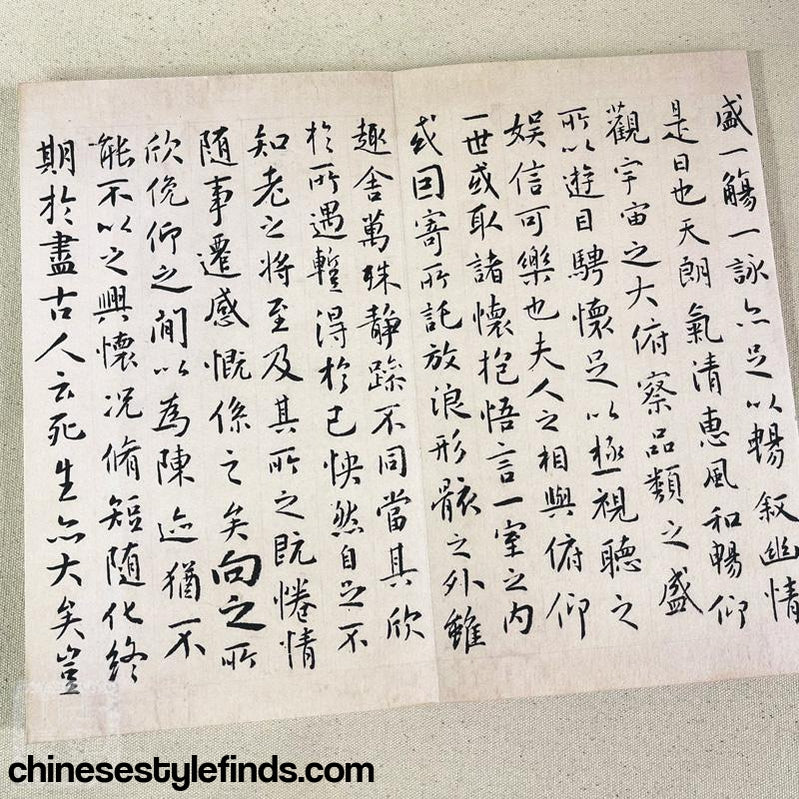 盛一觴一詠亦足以暢叙幽情
是日也天朗氣清惠風和暢仰
觀宇宙之大俯察品類之盛
所以遊目騁懷足以極視聽之
娱信可樂也夫人之相與俯仰
一世或取諸懷抱悟言一室之内
或因寄所託放浪形骸之外雖
趣舍萬殊静躁不同當其欣
於所遇暫得於己怏然自足不
知老之將至及其所之既惓情
随事遷感慨係之矣向之所
欣俛仰之間以為陳迹猶不
能不以之興懷况脩短随化終
期於盡古人云死生亦大矣豈
chinesestylefinds.com